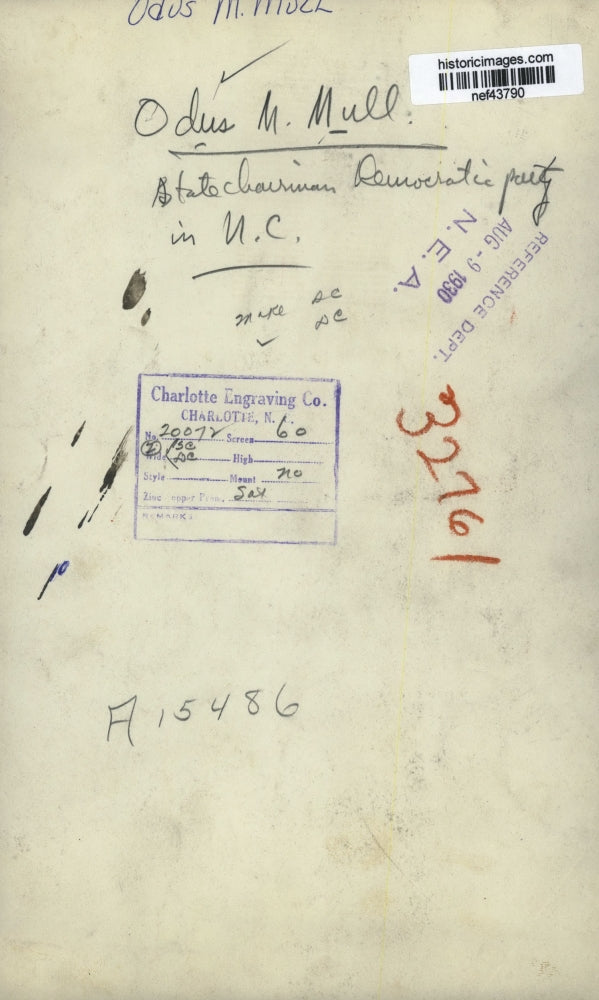 Odus M. Mull
historicimages.com
nef43790
Odus M. Mull.
State chairman Democratic party
in N.C.
REFERENCE DEPT.
AUG - 9 1930
N. E. A.
make SC
DC
32761
Charlotte Engraving Co.
CHARLOTTE, N.
No. 20072 Screen 60
2 1 SC
Wide DC High
Style Mount no
Zinc opper Prem. Sat
REMARKS
A 15486